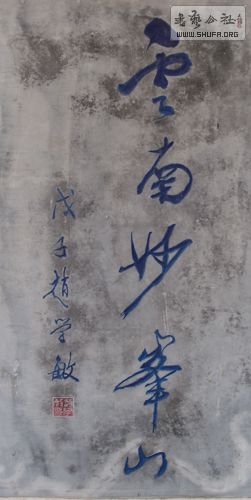 雲南妙峯山
戊子趙学敏
書藝公社
WWW.SHUFA.ORG